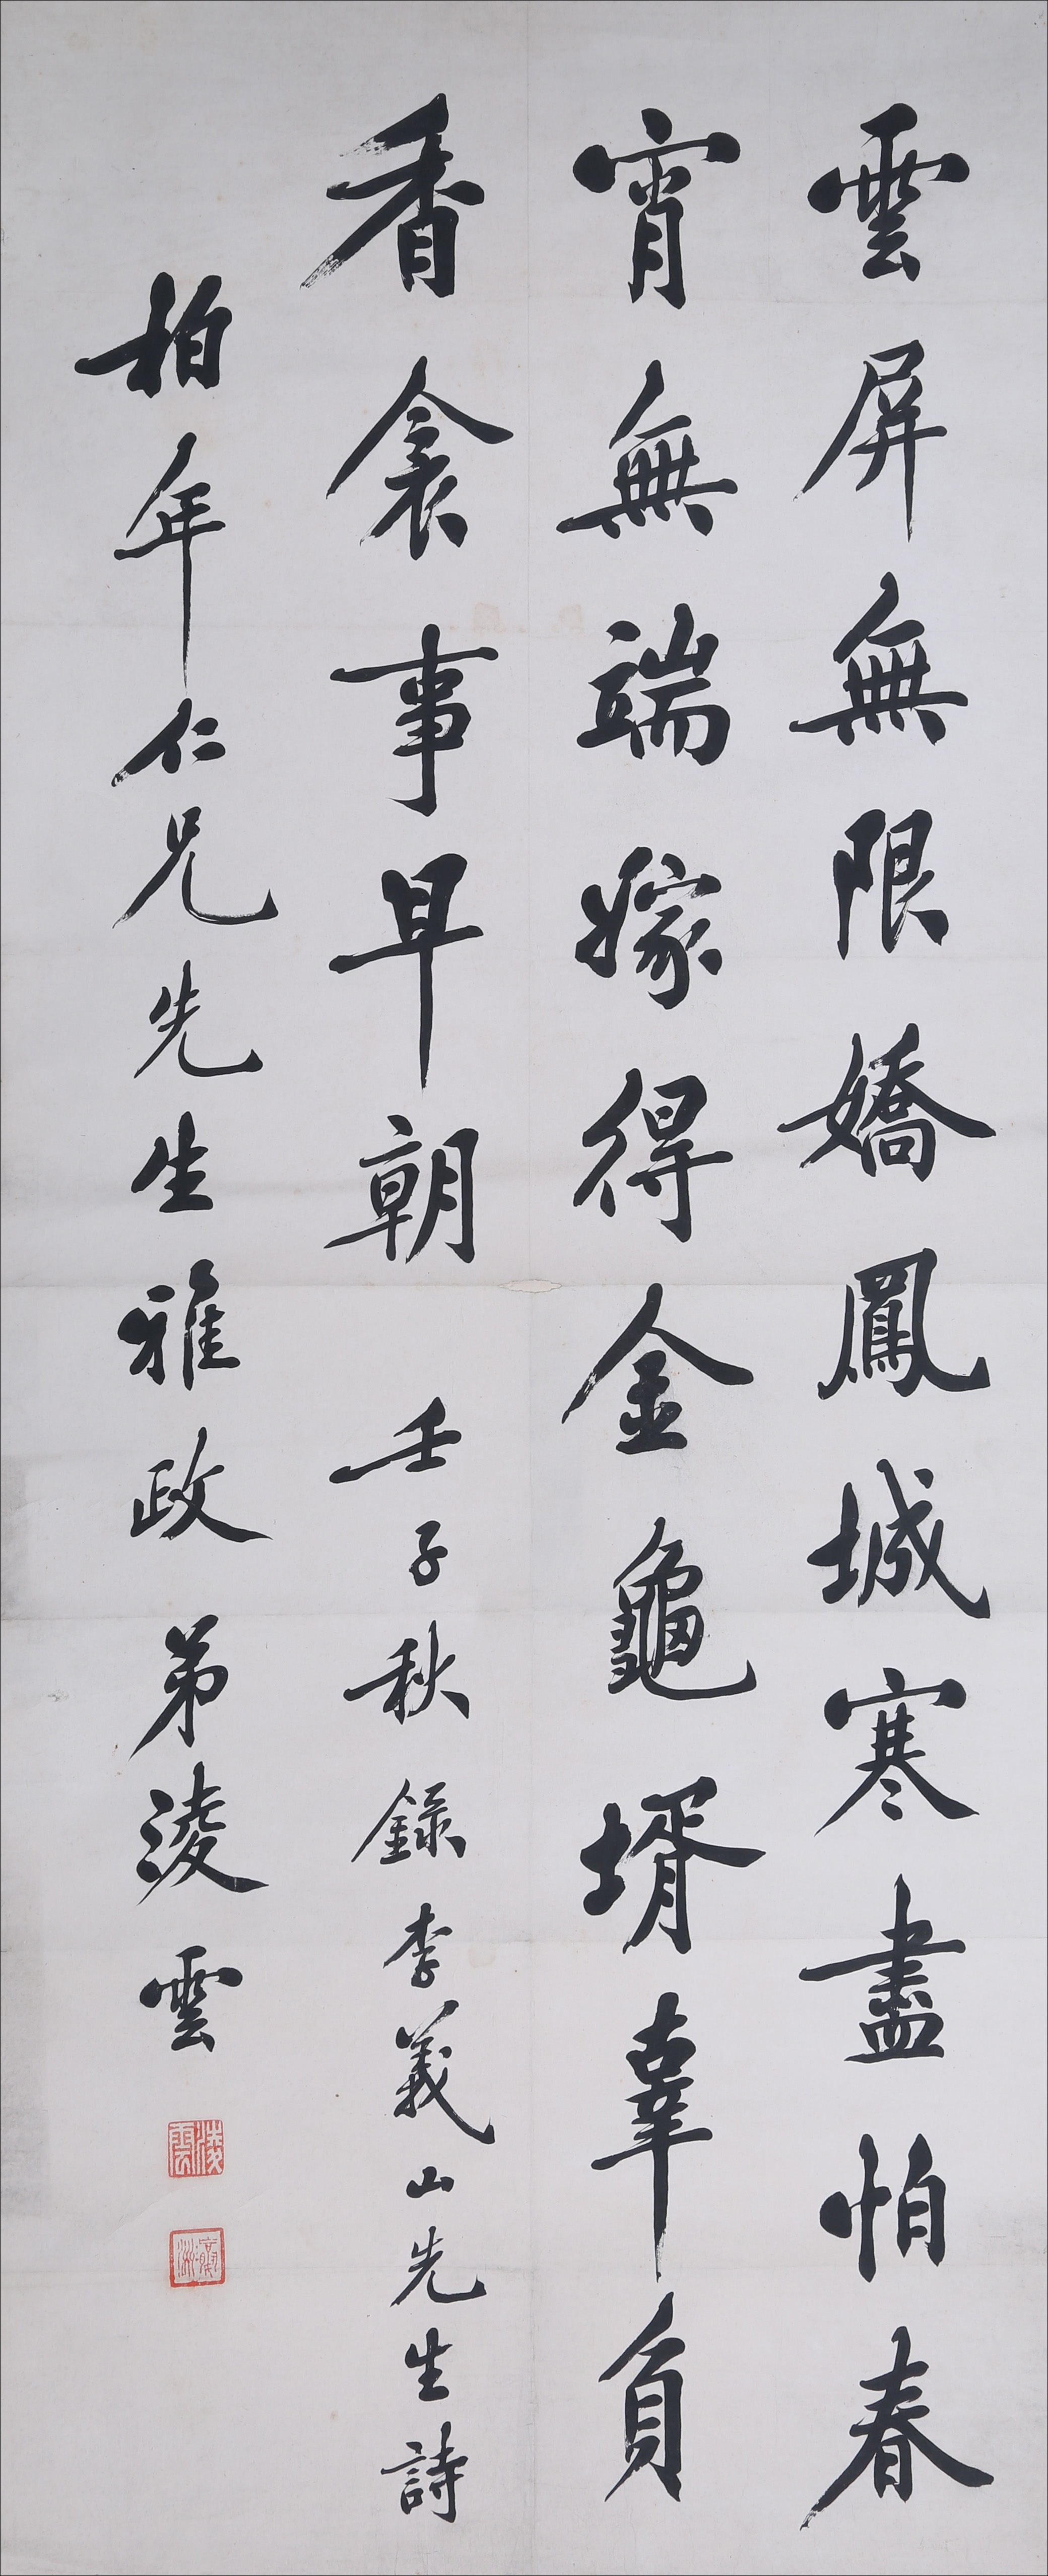 雲屏無限嬌鳳城寒盡怕春
宵無端嫁得金龜壻辜負
香衾事早朝 壬子秋錄李義山先生詩
柏年仁兄先生雅政 弟淩雲
淩雲